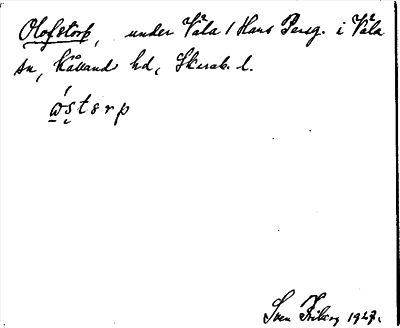 Olofstorp, under Vala / Hans Persg. i Våla
sn, Kållands hd, Skarab. l.
ώstɵrp
Sven Friberg 1927.